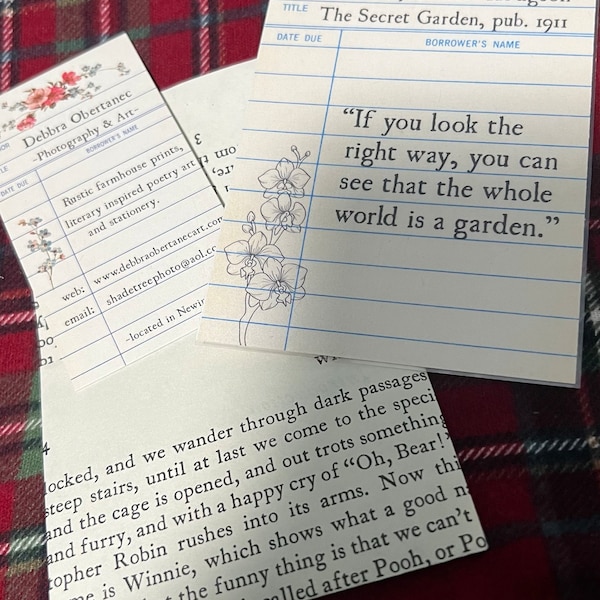 TITLE The Secret Garden, pub. 1911
DATE DUE BORROWER'S NAME
"If you look the
right way, you can
see that the whole
world is a garden."
Debbra Obertanec
-Photography & Art-
BORROWER'S NAME
DATE DUE
Rustic farmhouse prints,
literary inspired poetry art
and stationery.
web: www.debbraobertanecart.com
email: shadetreephoto@aol.co
-located in
4
locked, and we wander through dark passages
steep stairs, until at last we come to the speci
and the cage is opened, and out trots something
and furry, and with a happy cry of "Oh, Bear!"
topher Robin rushes into its arms. Now thi
is Winnie, which shows what a good n
the funny thing is that we can't
called after Pooh, or Po